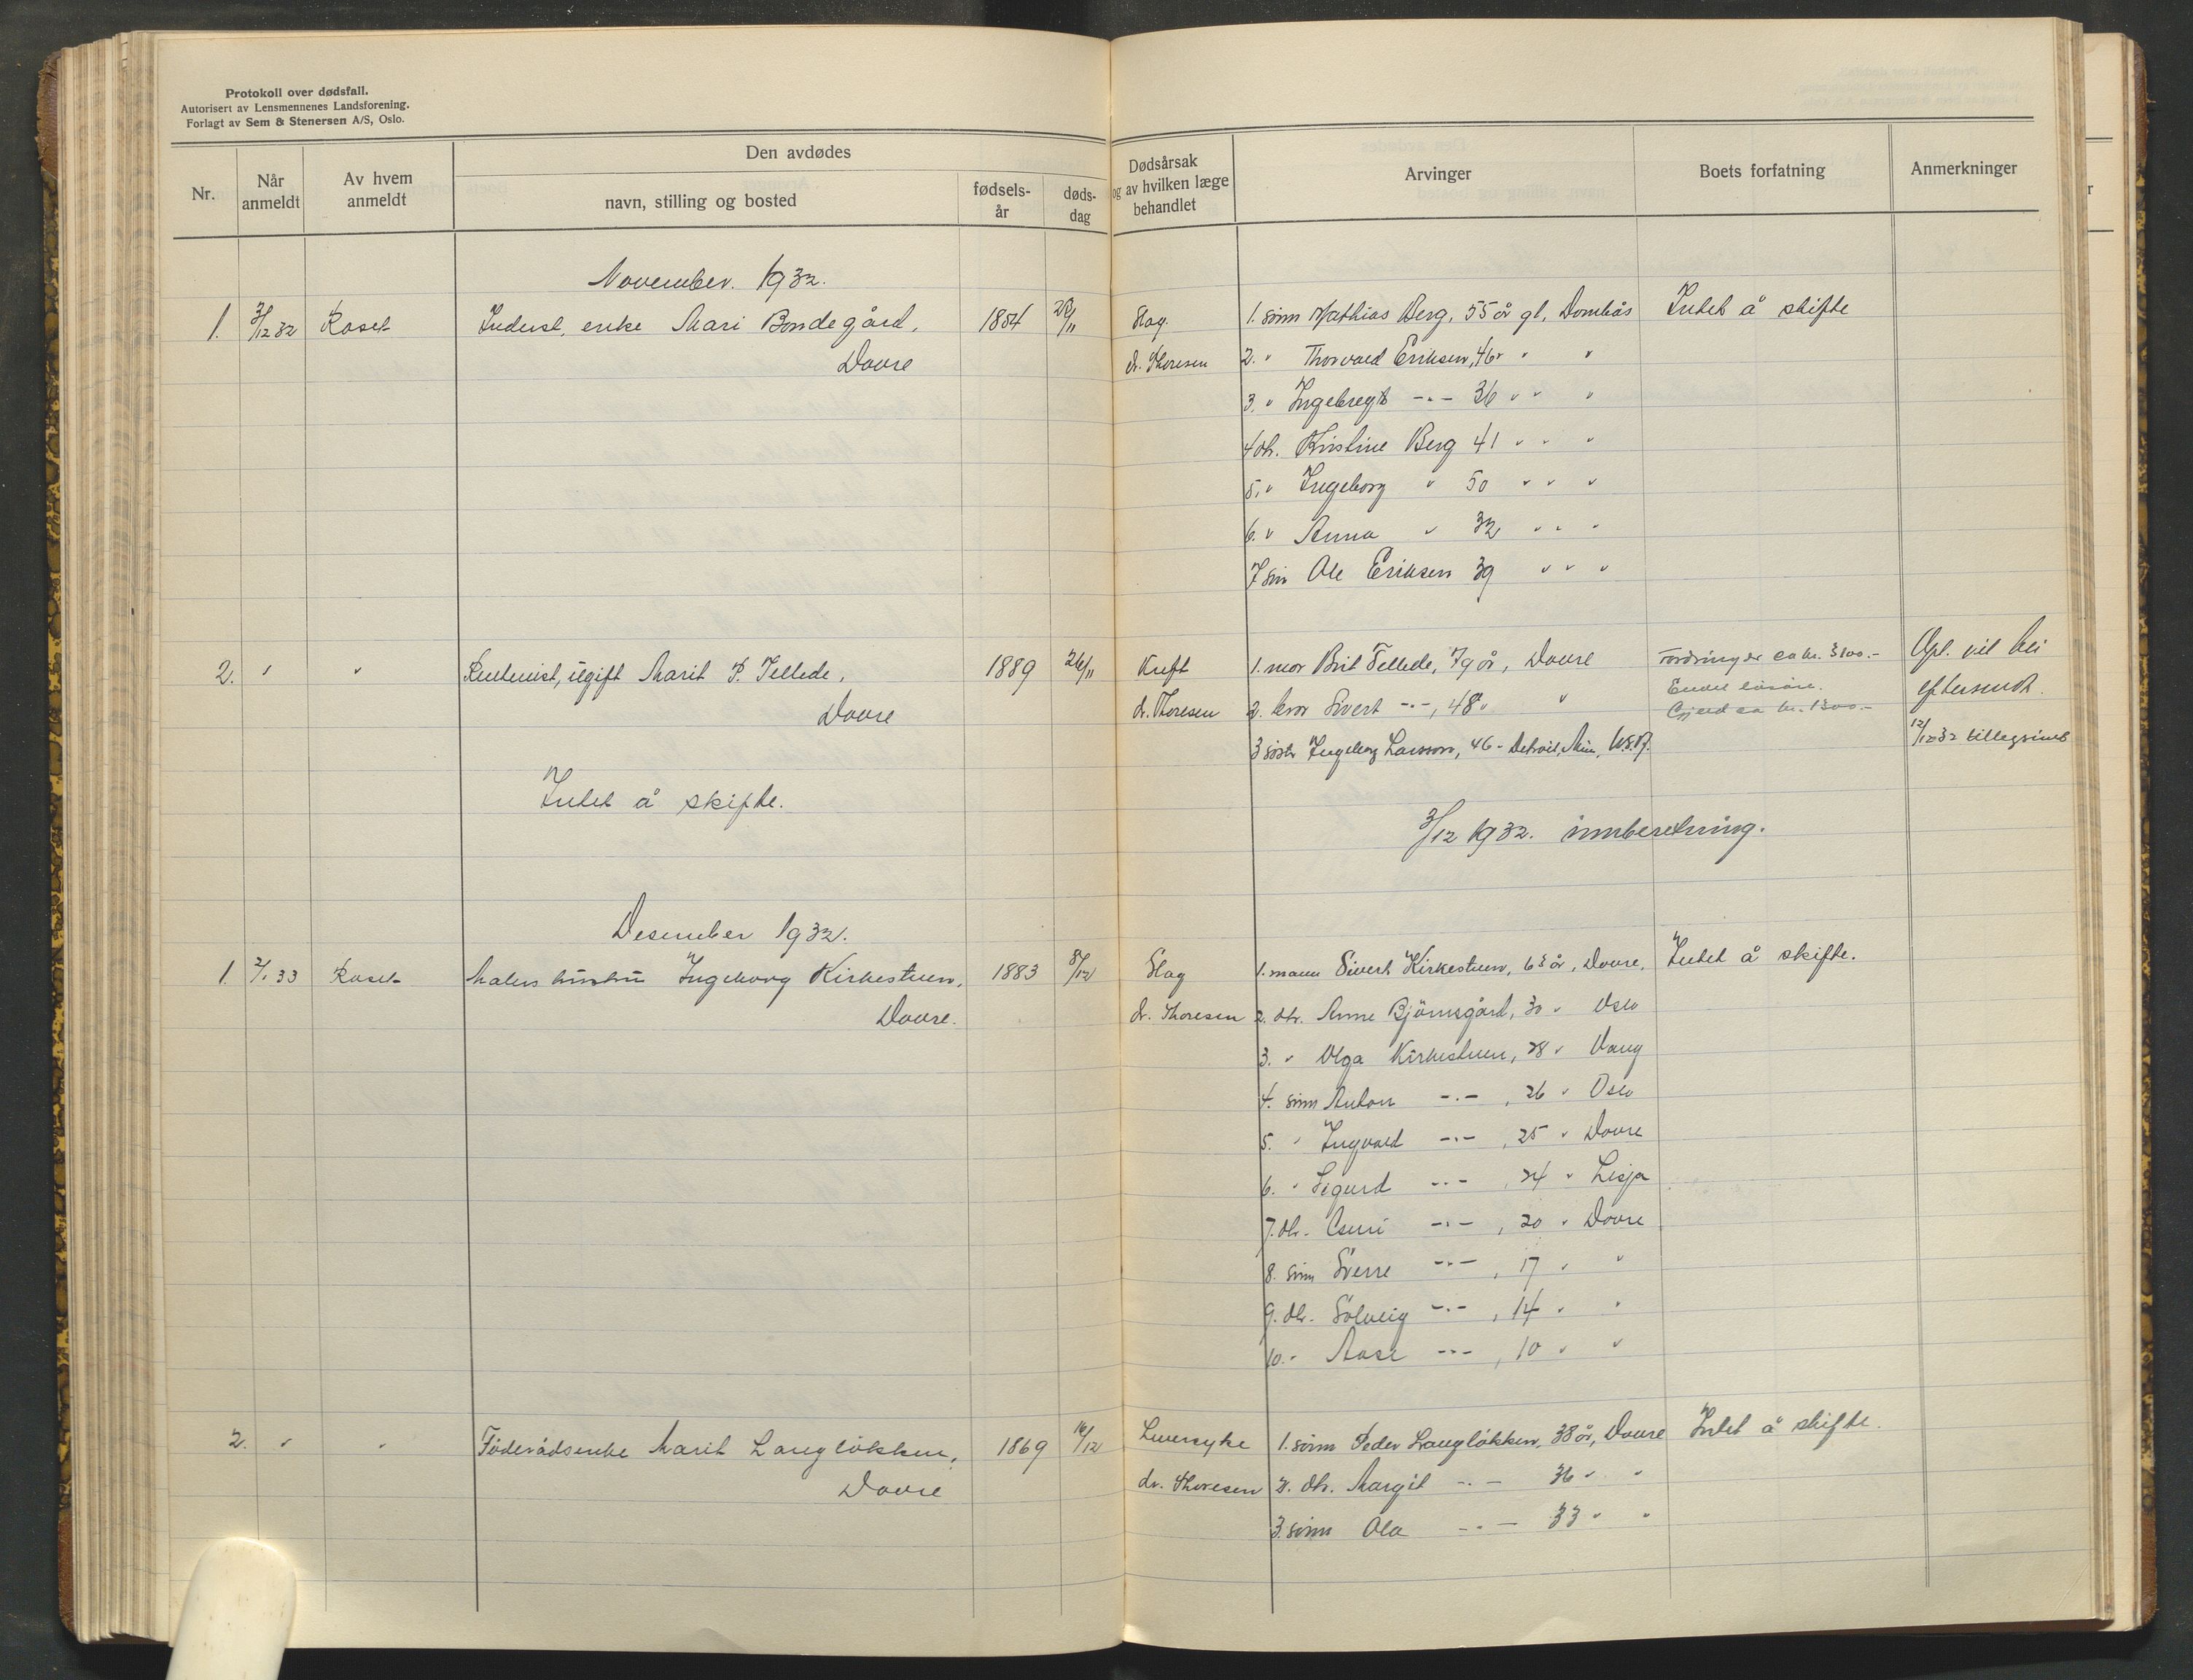 Protokoll over dødsfall.
Autorisert av Lensmennenes Landsforening.
Forlagt av Sem & Stenersen A/S, Oslo.
Nr.
Når anmeldt
Av hvem anmeldt
Den avdødes
navn, stilling og bosted
fødsels-år
døds-dag
Dødsårsak og av hvilken læge behandlet
Arvinger
Boets forfatning
Anmerkninger
November. 1932.
1. 3/12 32 Enke Mari Bondegård, 1854 Slag. 1. sönn Mathias Berg, 55 år gl. Dombås Intet å skifte
Dovre dr. Thoresen 2. " Thorvald Eriksen, 46 " "
3. " Ingebregt -"- 36 " " "
4 dtr. Kristine Berg 41 " " "
5. " Ingeborg " 50 " " "
6. " Anna " 32 " " "
7 sön Ole Eriksen 39 " " "
2. " " ugift Marit P. Tellede, 1889 26/11 Kreft 1. mor Brit Tellede, 79 år, Dovre Fordringer ca kr. 3100.- Opl. vil bli
Dovre dr. Thoresen 2. bror Sivert -"-, 48 " " Endel lösöre. eftersendt.
Gjeld ca kr. 1300.-
3 söstr Ingeborg Larsson, 46 - Detroit, U.S.A. 12/12 32
Intet å skifte.
3/12 1932. innberetning.
Desember 1932.
1. 2/1 33 Malers hustru Ingeborg Kirkestuen, 1883 8/12 Slag 1. mann Sivert Kirkestuen, 63 år, Dovre, Intet å skifte.
Dovre. dr. Thoresen 2. dtr. Anne Björnsgård, 30 " Oslo
3. " Olga Kirkestuen, 28 " Vang
4. sönn Anton -"-, 26 " Oslo
5. " Ingvald -"-, 25 " Dovre
6. " Sigurd -"-, 24 " Lesja
7. dtr. -"-, 20 " Dovre
8. sönn Sverre -"-, 17 " "
9. dtr. Solveig -"-, 14 " "
10. " Aase -"-, 10 " "
2. " " Föderådsenke Marit Langlökken, 1869 16/12 Leversyke 1. sönn Peder Langlökken, 38 år, Dovre Intet å skifte.
Dovre dr. Thoresen 2. dtr. Margit -"- 36 " "
3. sönn Ola -"- 33 " "